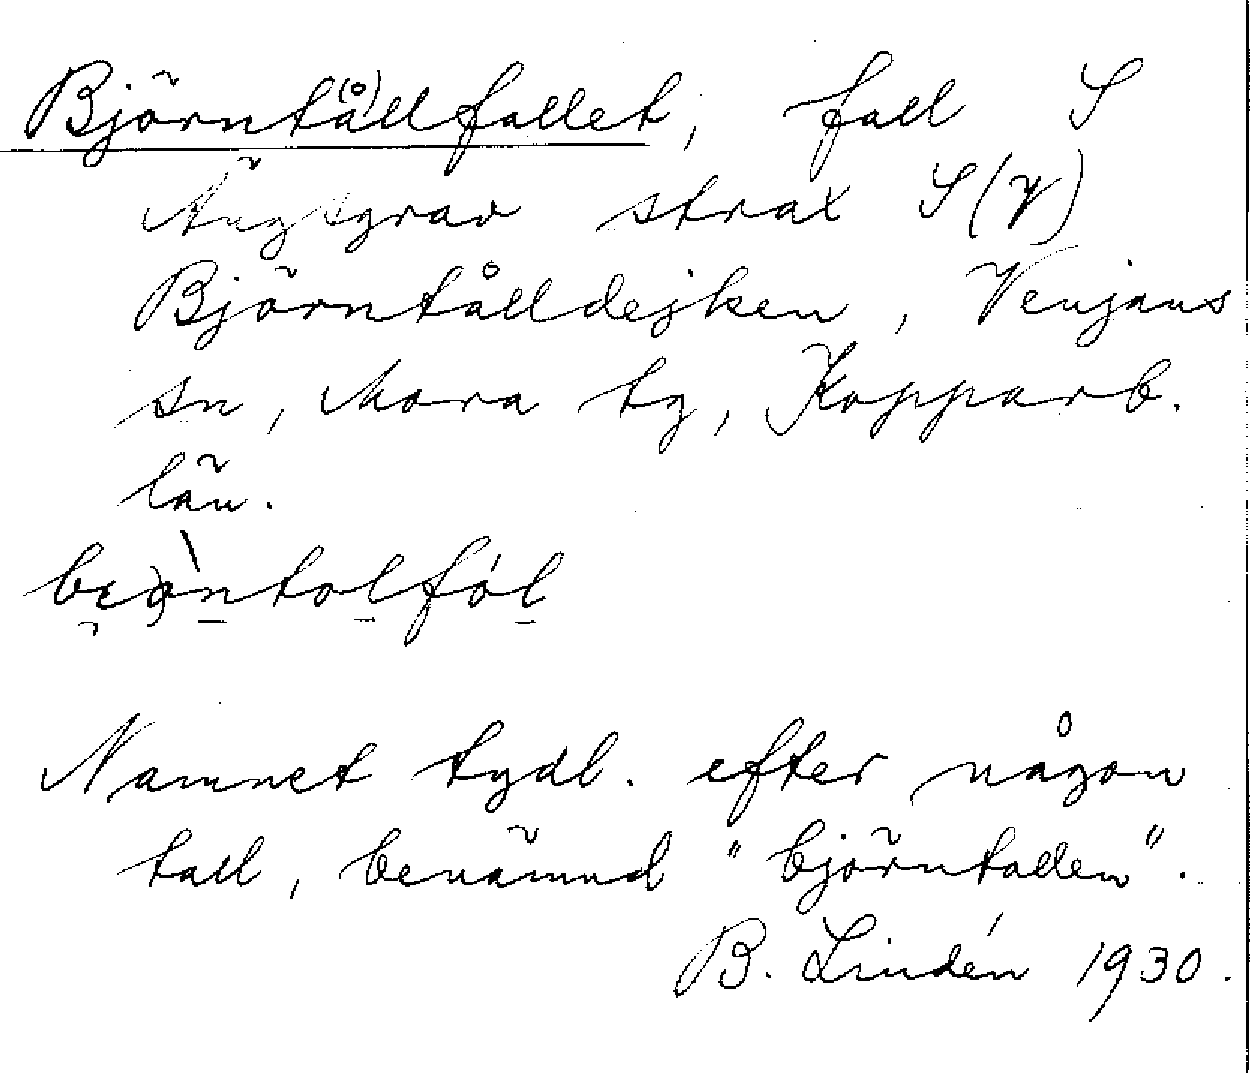 Björntå(o)llfallet, fall S
Ängsgrav strax S(V)
Björntålldejken, Venjans
sn, Mora tg, Kopparb.
län.
Namnet tydl. efter någon
tall, benämnd "björntallen".
B. Lindén 1930.